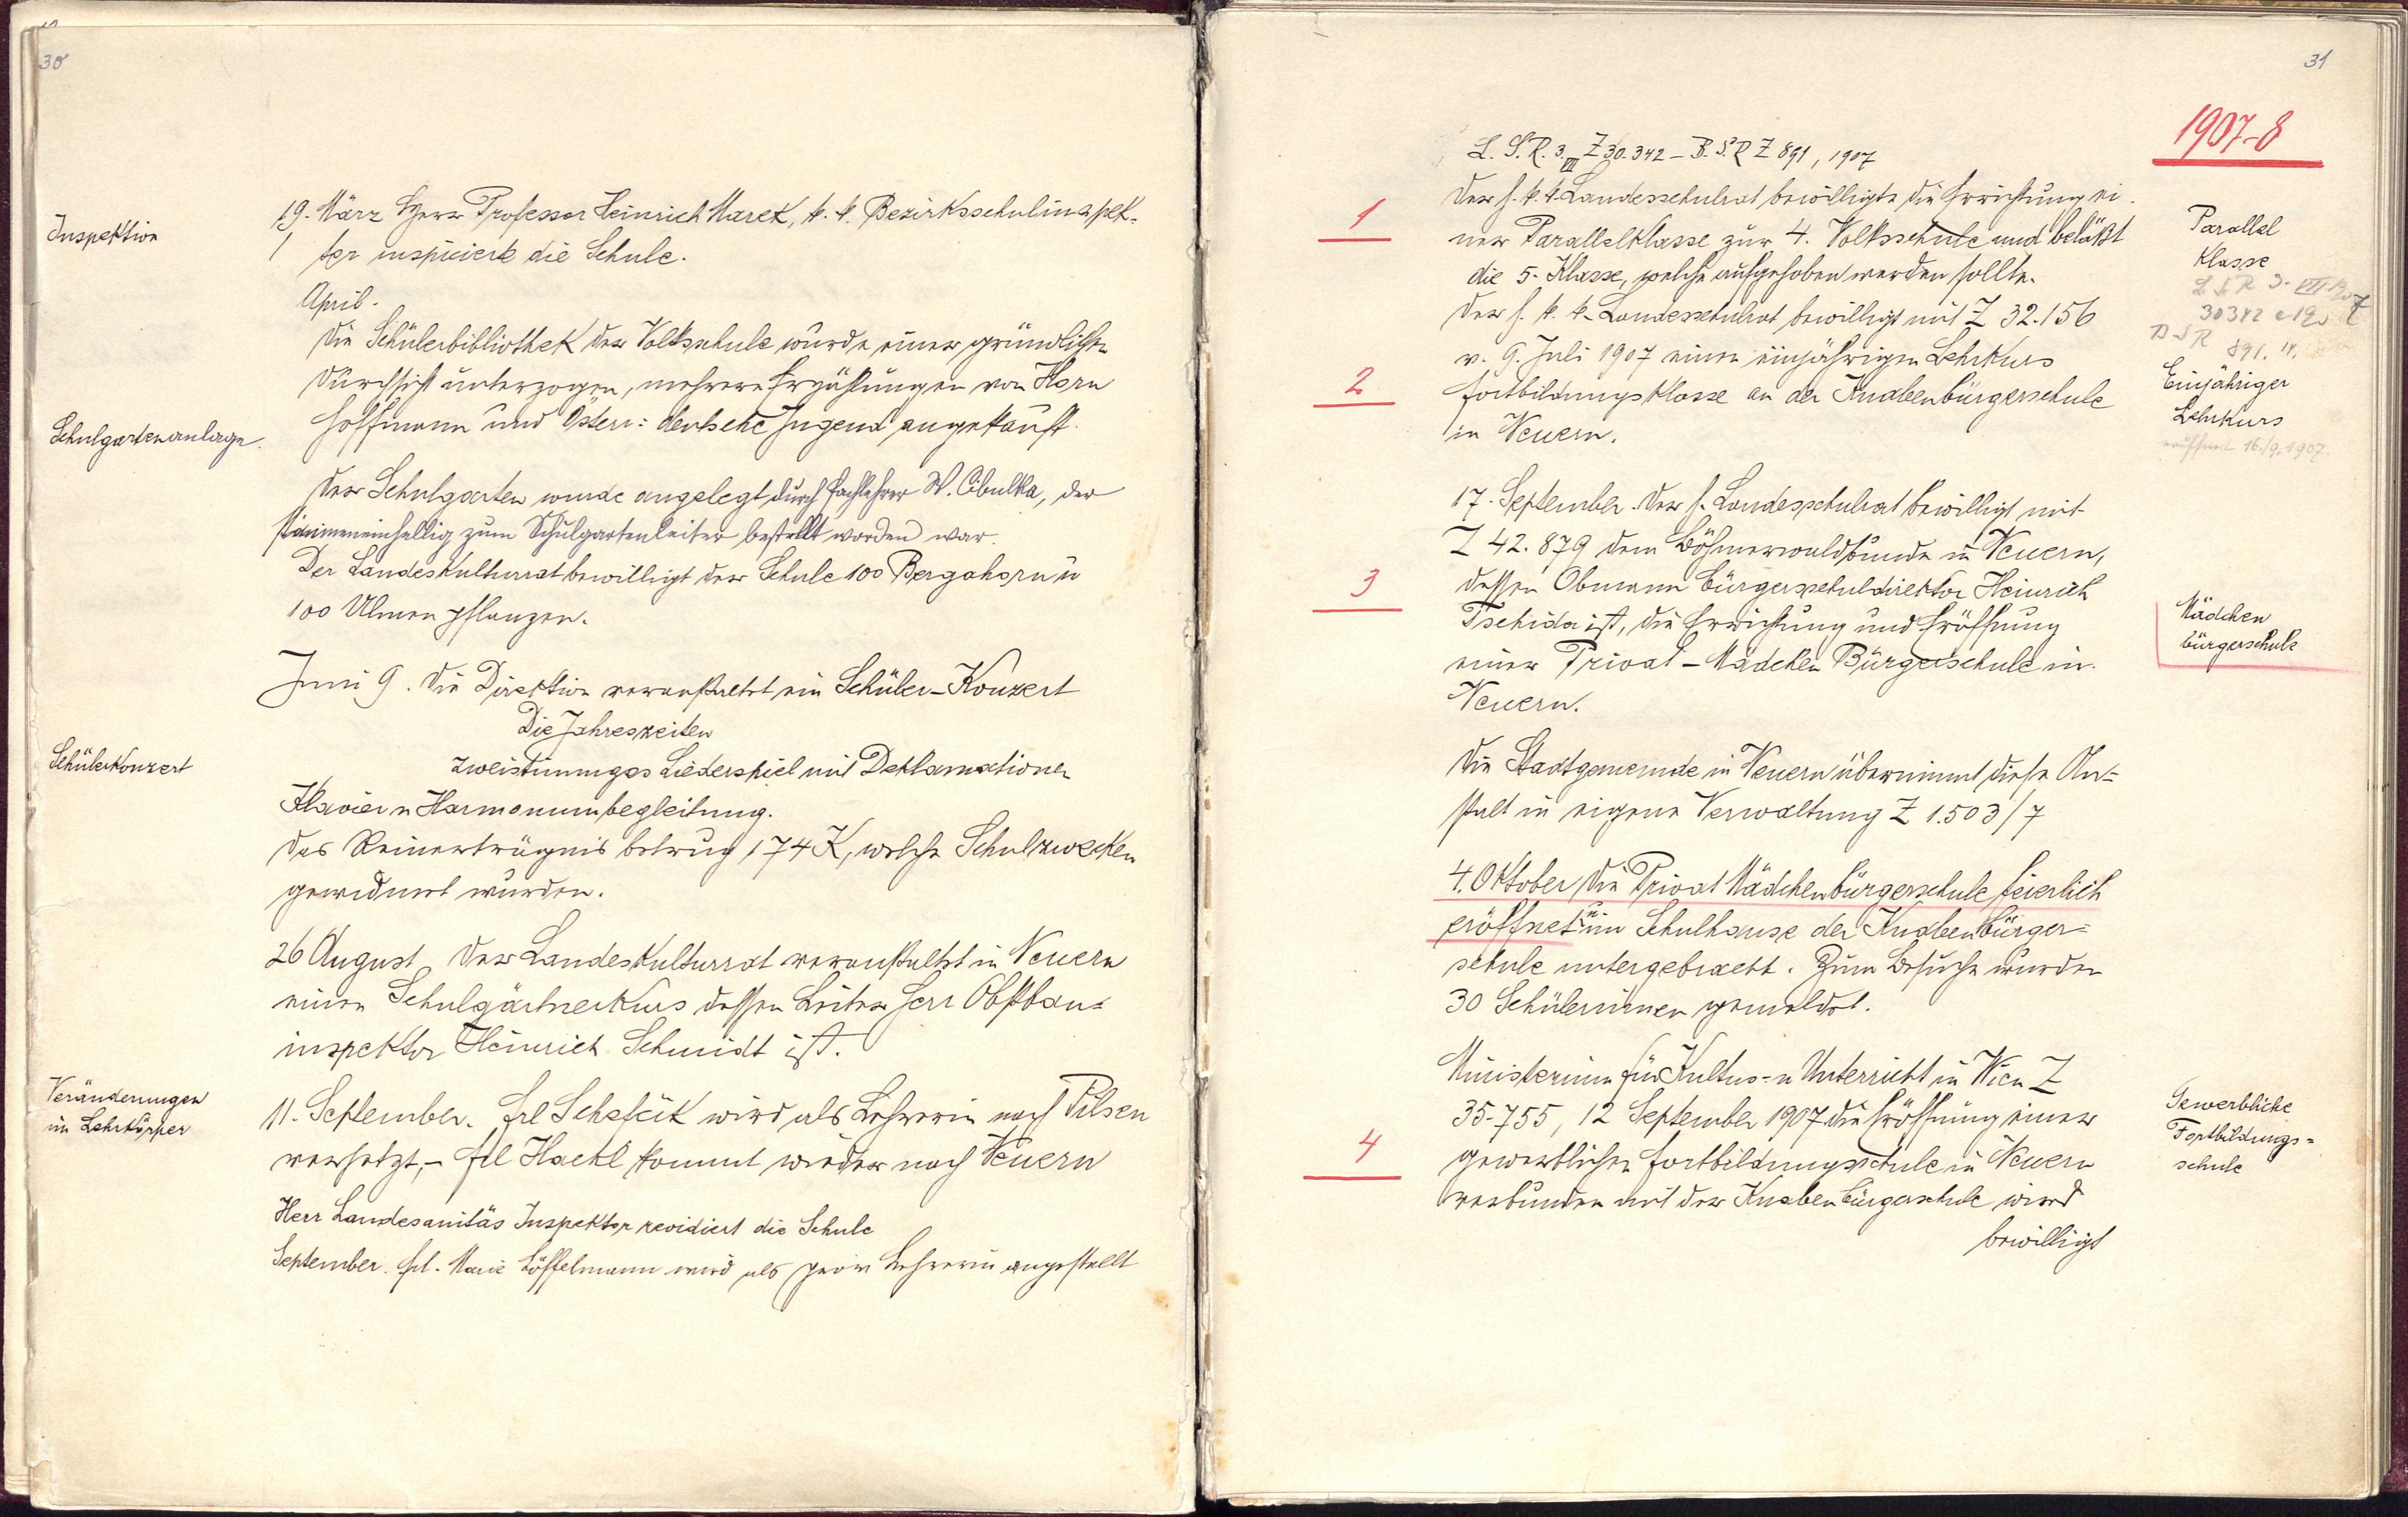 30
Inspektion
19. März Herr Professor Heinrich Marek, k. k. Bezirksschulinspek-
tor inspiciert die Schule.
April.
Die Schülerbibliothek der Volksschule wurde einer gründlichen
Durchsicht unterzogen, mehrere Erzählungen von Horn
Hoffmann und Österr: deutsche Jugend angekauft.
Schulgartenanlage.
Der Schulgarten wurde angelegt durch Fachlehrer W. Cibulka, der
stimmeneinhellig zum Schulgartenleiter bestellt worden war.
Der Landeskulturrat bewilligt der Schule 100 Bergahorn u
100 Ulmen pflanzen.
Juni 9. Die Direktion veranstaltet ein Schüler-Konzert
Die Jahreszeiten
Schülerkonzert
zweistimmiges Liederspiel mit Deklamationen
Klavier u Harmoniumbegleitung.
Das Reinerträgnis betrug 174 K, welche Schulzwecken
gewidmet wurden.
26 August. Der Landeskulturrat veranstaltet in Neuern
einen Schulgärtnerkurs dessen Leiter Herr Obstbau-
inspektor Heinrich Schmidt ist.
Veränderungen
im Lehrkörper
11. September. Frl Schefcik wird als Lehrerin nach Pilsen
versetzt, – Frl Hackl kommt wieder nach Neuern
Herr Landesanitäs Inspektor revidiert die Schule
September. Frl. Marie Löffelmann wird als prov Lehrerin angestellt
31
1907-8
L. S. R. 3. VII Z 30.342 – B. S. R Z 891, 1907
1
Der h. k. k. Landesschulrat bewilligte die Errichtung ei-
ner Parallelklasse zur 4. Volksschule und beläßt
die 5. Klasse, welche aufgehoben werden sollte.
Parallel
Klasse
L S R 3. VII 1907
30342
B S R 891.
Der h. k. k. Landesschulrat bewilligt mit Z 32.156
v. 9. Juli 1907 einen einjährigen Lehrkurs
2
Fortbildungsklasse an der Knabenbürgerschule
in Neuern.
Einjähriger
Lehrkurs
eröffnet 16./9. 1907.
17. September. Der h. Landesschulrat bewilligt mit
Z 42.879 dem Böhmerwaldbunde in Neuern,
3
dessen Obmann Bürgerschuldirektor Heinrich
Tschida ist, die Errichtung und Eröffnung
einer Privat-Mädchen Bürgerschule in
Neuern.
Mädchen
bürgerschule
Die Stadtgemeinde in Neuern übernimmt diese An-
stalt in eigene Verwaltung Z 1.503/7
4. Oktober die Privat Mädchenbürgerschule feierlich
eröffnet u im Schulhause der Knabenbürger-
schule untergebracht. Zum Besuche wurden
30 Schülerinnen gemeldet.
Ministerium für Kultus- u Unterricht in Wien Z
35.755, 12 September 1907 die Eröffnung einer
4
gewerblichen Fortbildungsschule in Neuern
verbunden mit der Knabenbürgerschule wird
bewilligt
Gewerbliche
Fortbildungs-
schule